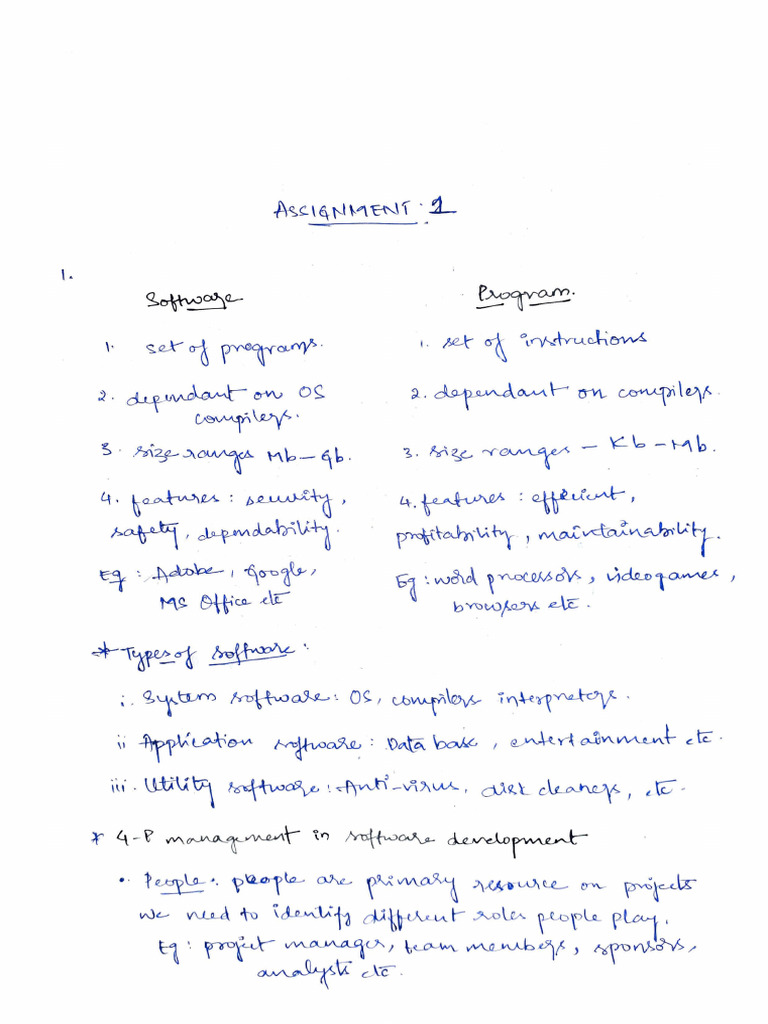 ASSIGNMENT: 1
1.
Software Program.
1. set of programs. 1. set of instructions
2. dependant on OS 2. dependant on compilers.
compilers.
3. size ranges Mb - Gb. 3. size ranges - Kb - Mb.
4. features: security, 4. features: efficient,
safety, dependability. profitability, maintainability.
Eg: Adobe, Google, Eg: word processors, videogames,
MS Office etc browsers etc.
* Types of software:
i. System software: OS, compilers interpreters.
ii Application software: Data base, entertainment etc.
iii. Utility software: Anti-virus, disk cleaners, etc.
* 4-P management in software development
• People: people are primary resource on projects
we need to identify different roles people play.
Eg: project manager, team members, sponsors,
analysts etc.